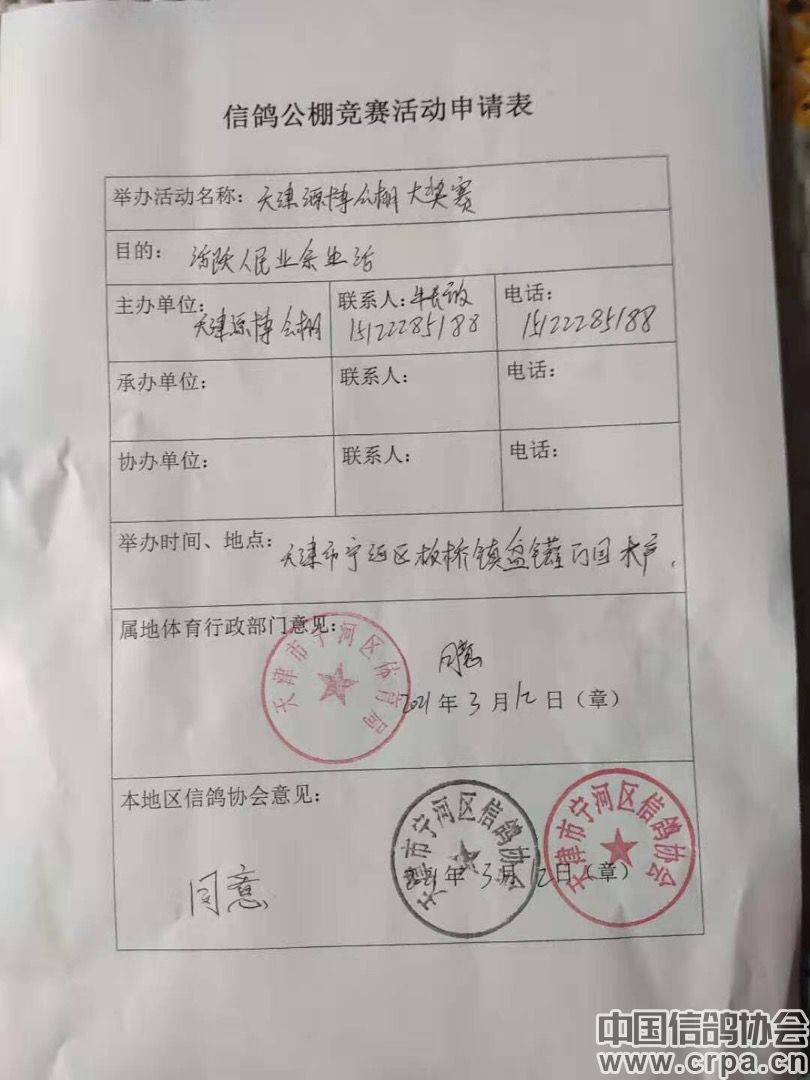 信鸽公棚竞赛活动申请表
举办活动名称：天津源博公棚大奖赛
目的：活跃人民业余生活
主办单位：天津源博公棚
联系人：牛
15122285188
电话：
15122285188
承办单位：
联系人：
电话：
协办单位：
联系人：
电话：
举办时间、地点：天津市宁河区板桥镇盆罐
属地体育行政部门意见：
天津市宁河区体育局
同意
2021年3月12日（章）
本地区信鸽协会意见：
天津市宁河区信鸽协会
天津市宁河区信鸽协会
2021年3月12日（章）
同意
中国信鸽协会
www.crpa.cn